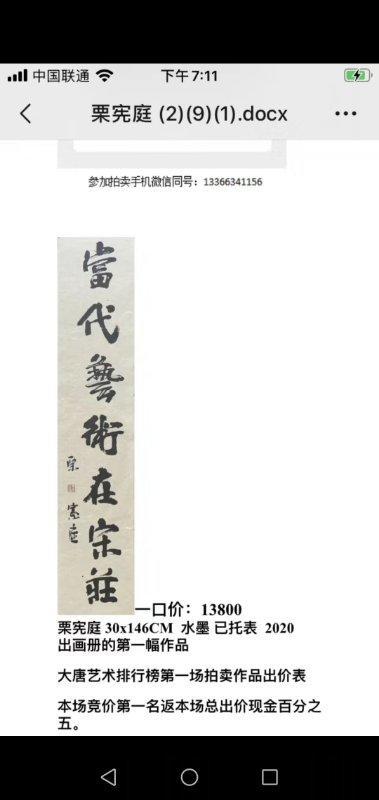 中国联通
下午7:11
栗宪庭 (2)(9)(1).docx
参加拍卖手机微信同号：13366341156
當代藝術在宋莊
栗憲庭
一口价：13800
栗宪庭 30x146CM 水墨 已托表 2020
出画册的第一幅作品
大唐艺术排行榜第一场拍卖作品出价表
本场竞价第一名返本场总出价现金百分之
五。